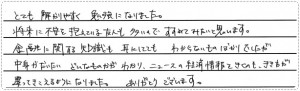 とても 解りやすく 勉強になりました。
将来に不安を抱えている友人も多いので すすめてみたいと思います。
金融に関する知識も 耳にしても わからないものばかりでしたが
中身がだいたい どんなものかが わかり、ニュースの経済情報をきくのも、きき方が
変ってきこえるようになりました。 ありがとうございます。